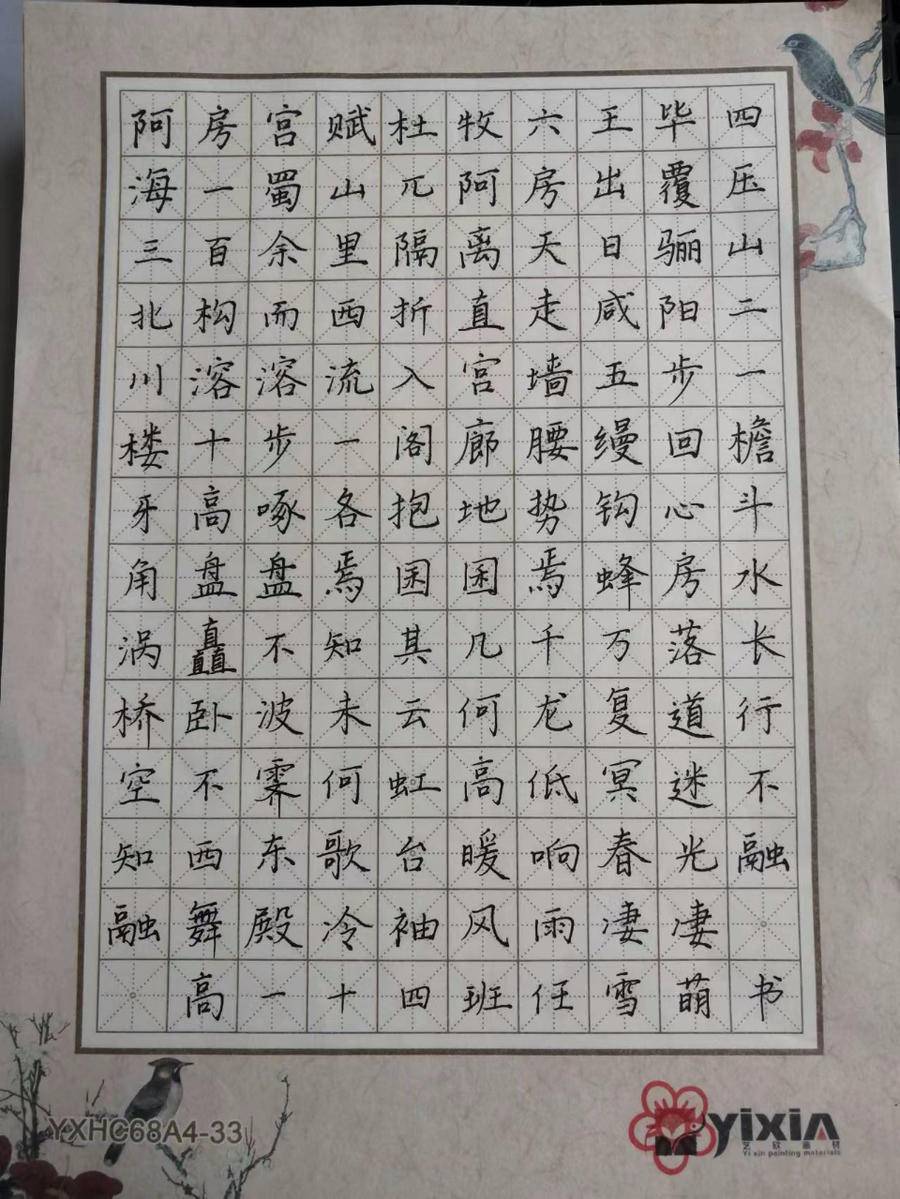 阿房宫赋杜牧六王毕四
海一蜀山兀阿房出覆压
三百余里隔离天日骊山
北构而西折直走咸阳二
川溶溶流入宫墙五步一
楼十步一阁廊腰缦回檐
牙高啄各抱地势钩心斗
角盘盘焉囷囷焉蜂房水
涡矗不知其几千万落长
桥卧波未云何龙复道行
空不霁何虹高低冥迷不
知西东歌台暖响春光融
融舞殿冷袖风雨凄凄
高一十四班任雪萌书
YXHC68A4-33
yixin
艺欣画材
Yi xin painting materials